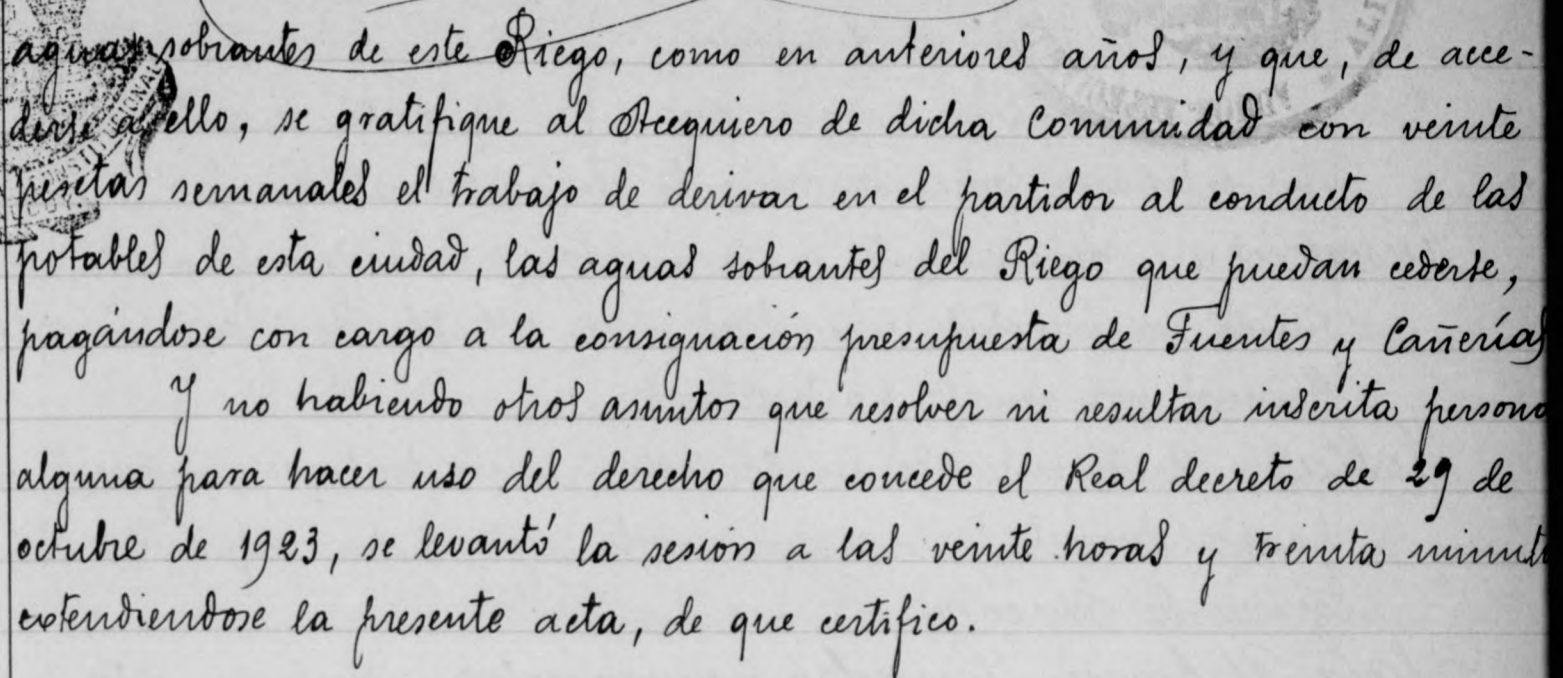 aguas sobrantes de este Riego, como en anteriores años, y que, de acce-
derse a ello, se gratifique al Acequiero de dicha Comunidad con veinte
pesetas semanales el trabajo de derivar en el partidor al conducto de las
potables de esta ciudad, las aguas sobrantes del Riego que puedan cederse,
pagándose con cargo a la consignación presupuesta de Fuentes y Cañerías
Y no habiendo otros asuntos que resolver ni resultar inscrita persona
alguna para hacer uso del derecho que concede el Real decreto de 29 de
octubre de 1923, se levantó la sesión a las veinte horas y treinta minut
extendiendose la presente acta, de que certifico.